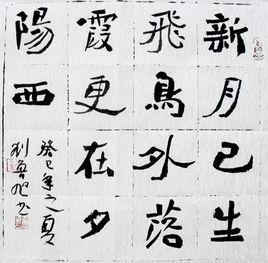 新月已生
飛鳥外落
霞更在夕
陽西
癸巳年之夏
魯旭书